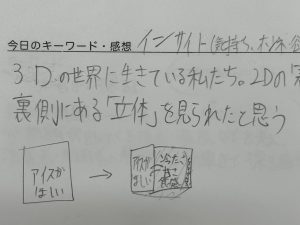 今日のキーワード・感想 インサイト(気持ち、
3Dの世界に生きている私たち。2Dの「
裏側にある「立体」を見られたと思う
アイスが
ほしい
→
アイスが
ほしい